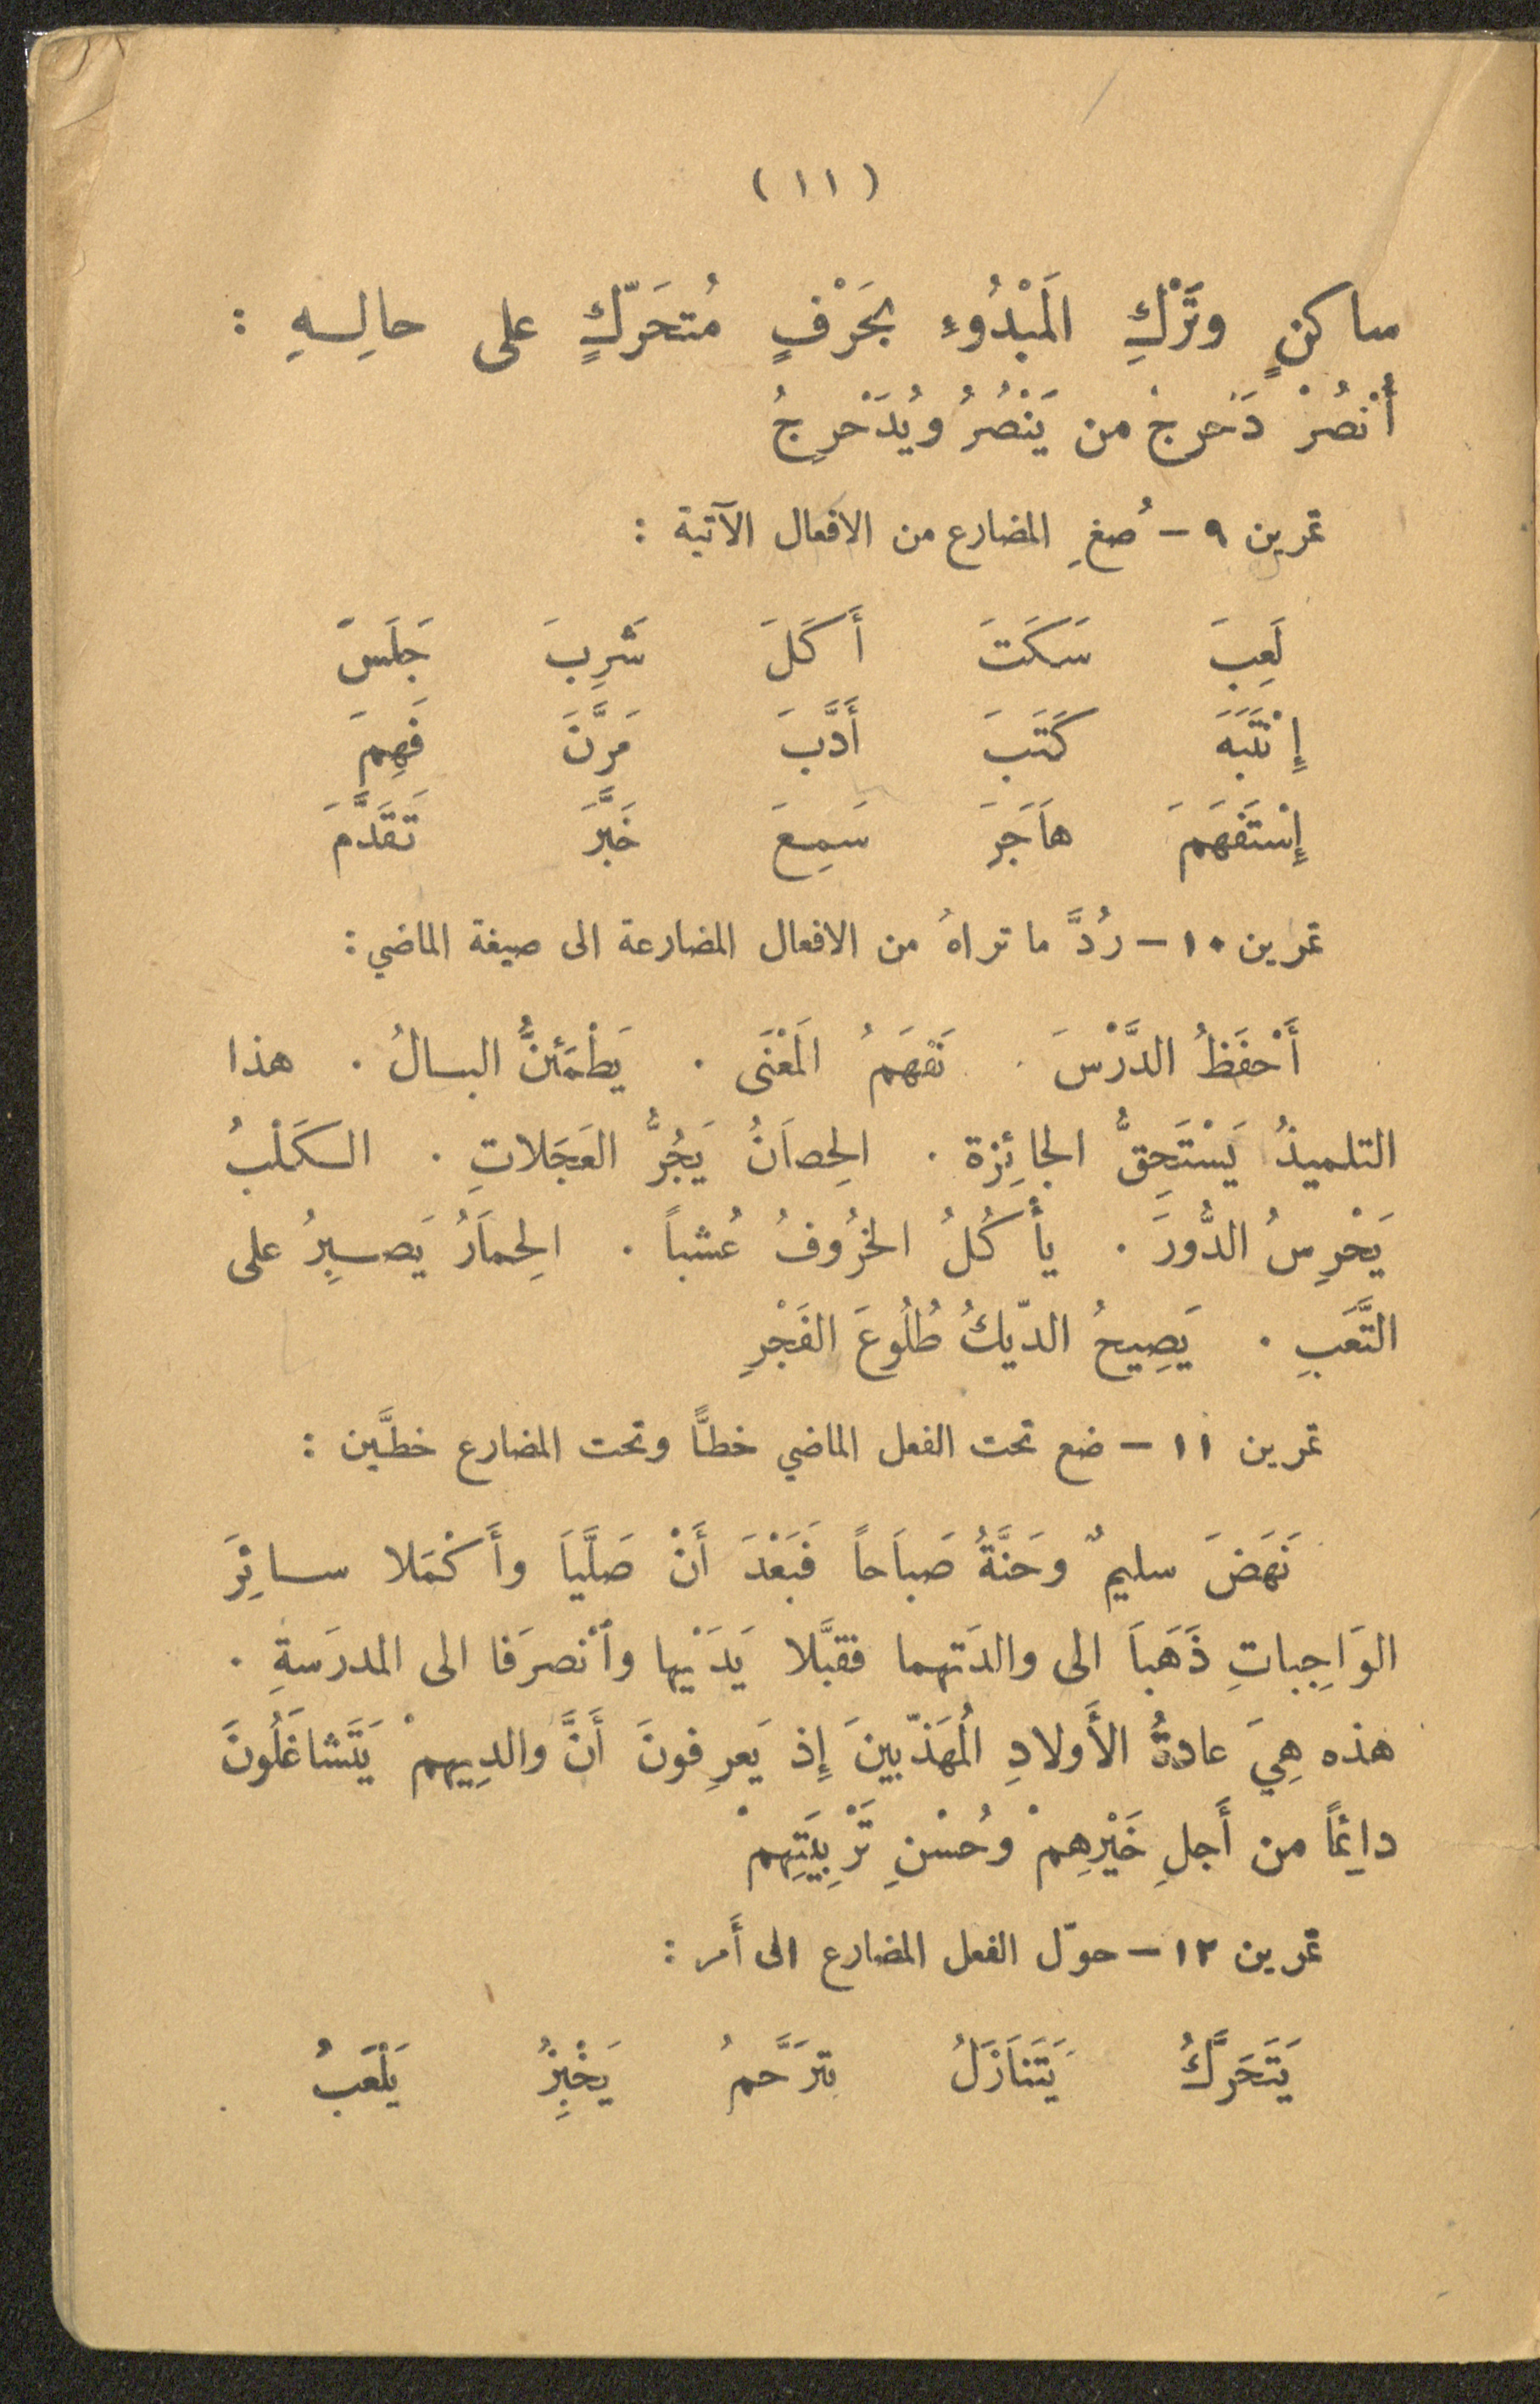 ( ١١ )
ساكنٍ وتَرْكِ المَبْدُوءِ بحَرْفٍ مُتحَرّكٍ على حالِهِ :
أُنْصُرْ دَحرِجْ من يَنْصُرُ ويُدَحْرِجُ
تمرين ٩ – صُغِ المضارع من الافعال الآتية :
لَعِبَ سَكَتَ أَكَلَ شَرِبَ جَلَسَ
إِنْتَبَهَ كَتَبَ أَدَّبَ مَرَّنَ فَهِمَ
إِسْتَفَهَمَ هَاجَرَ سَمِعَ خَبَّرَ تَقَدَّمَ
تمرين ١٠ – رُدَّ ما تراهُ من الافعال المضارعة الى صيغة الماضي :
أَحْفَظُ الدَّرْسَ . نَفهَمُ المَعْنَى . يَطْمَئنُّ البالُ . هذا
التلميذُ يَسْتَحِقُّ الجائِزة . الحِصَانُ يَجُرُّ العَجَلاتِ . الكَلْبُ
يَحْرِسُ الدُّورَ . يأْكُلُ الخرُوفُ عُشباً . الحِمَارُ يَصبِرُ على
التَّعَبِ . يَصِيحُ الدّيكُ طُلُوعَ الفَجْرِ
تمرين ١١ – ضع تحت الفعل الماضي خطًّا وتحت المضارع خطَّين :
نَهَضَ سليمٌ وحَنَّةُ صَبَاحاً فَبَعْدَ أَنْ صَلَّيَا وأَكْمَلا سائِرَ
الوَاجِباتِ ذَهَبَا الى والدَتهما فقبَّلا يَدَيْها وأنْصرَفا الى المدرَسةِ .
هذه هِيَ عادةُ الأَولادِ المُهَذّبينَ إِذ يَعرِفونَ أَنَّ والدِيهمْ يَتَشاغَلُونَ
دائِمًا من أَجلِ خَيْرِهِمْ وحُسْنِ تَرْبِيَتِهِمْ
تمرين ١٢ – حوّل الفعل المضارع الى أَمر :
يَتَحَرَّكُ يَتَنَازَلُ يترَحَّمُ يَخْبِزُ يَلْعَبُ